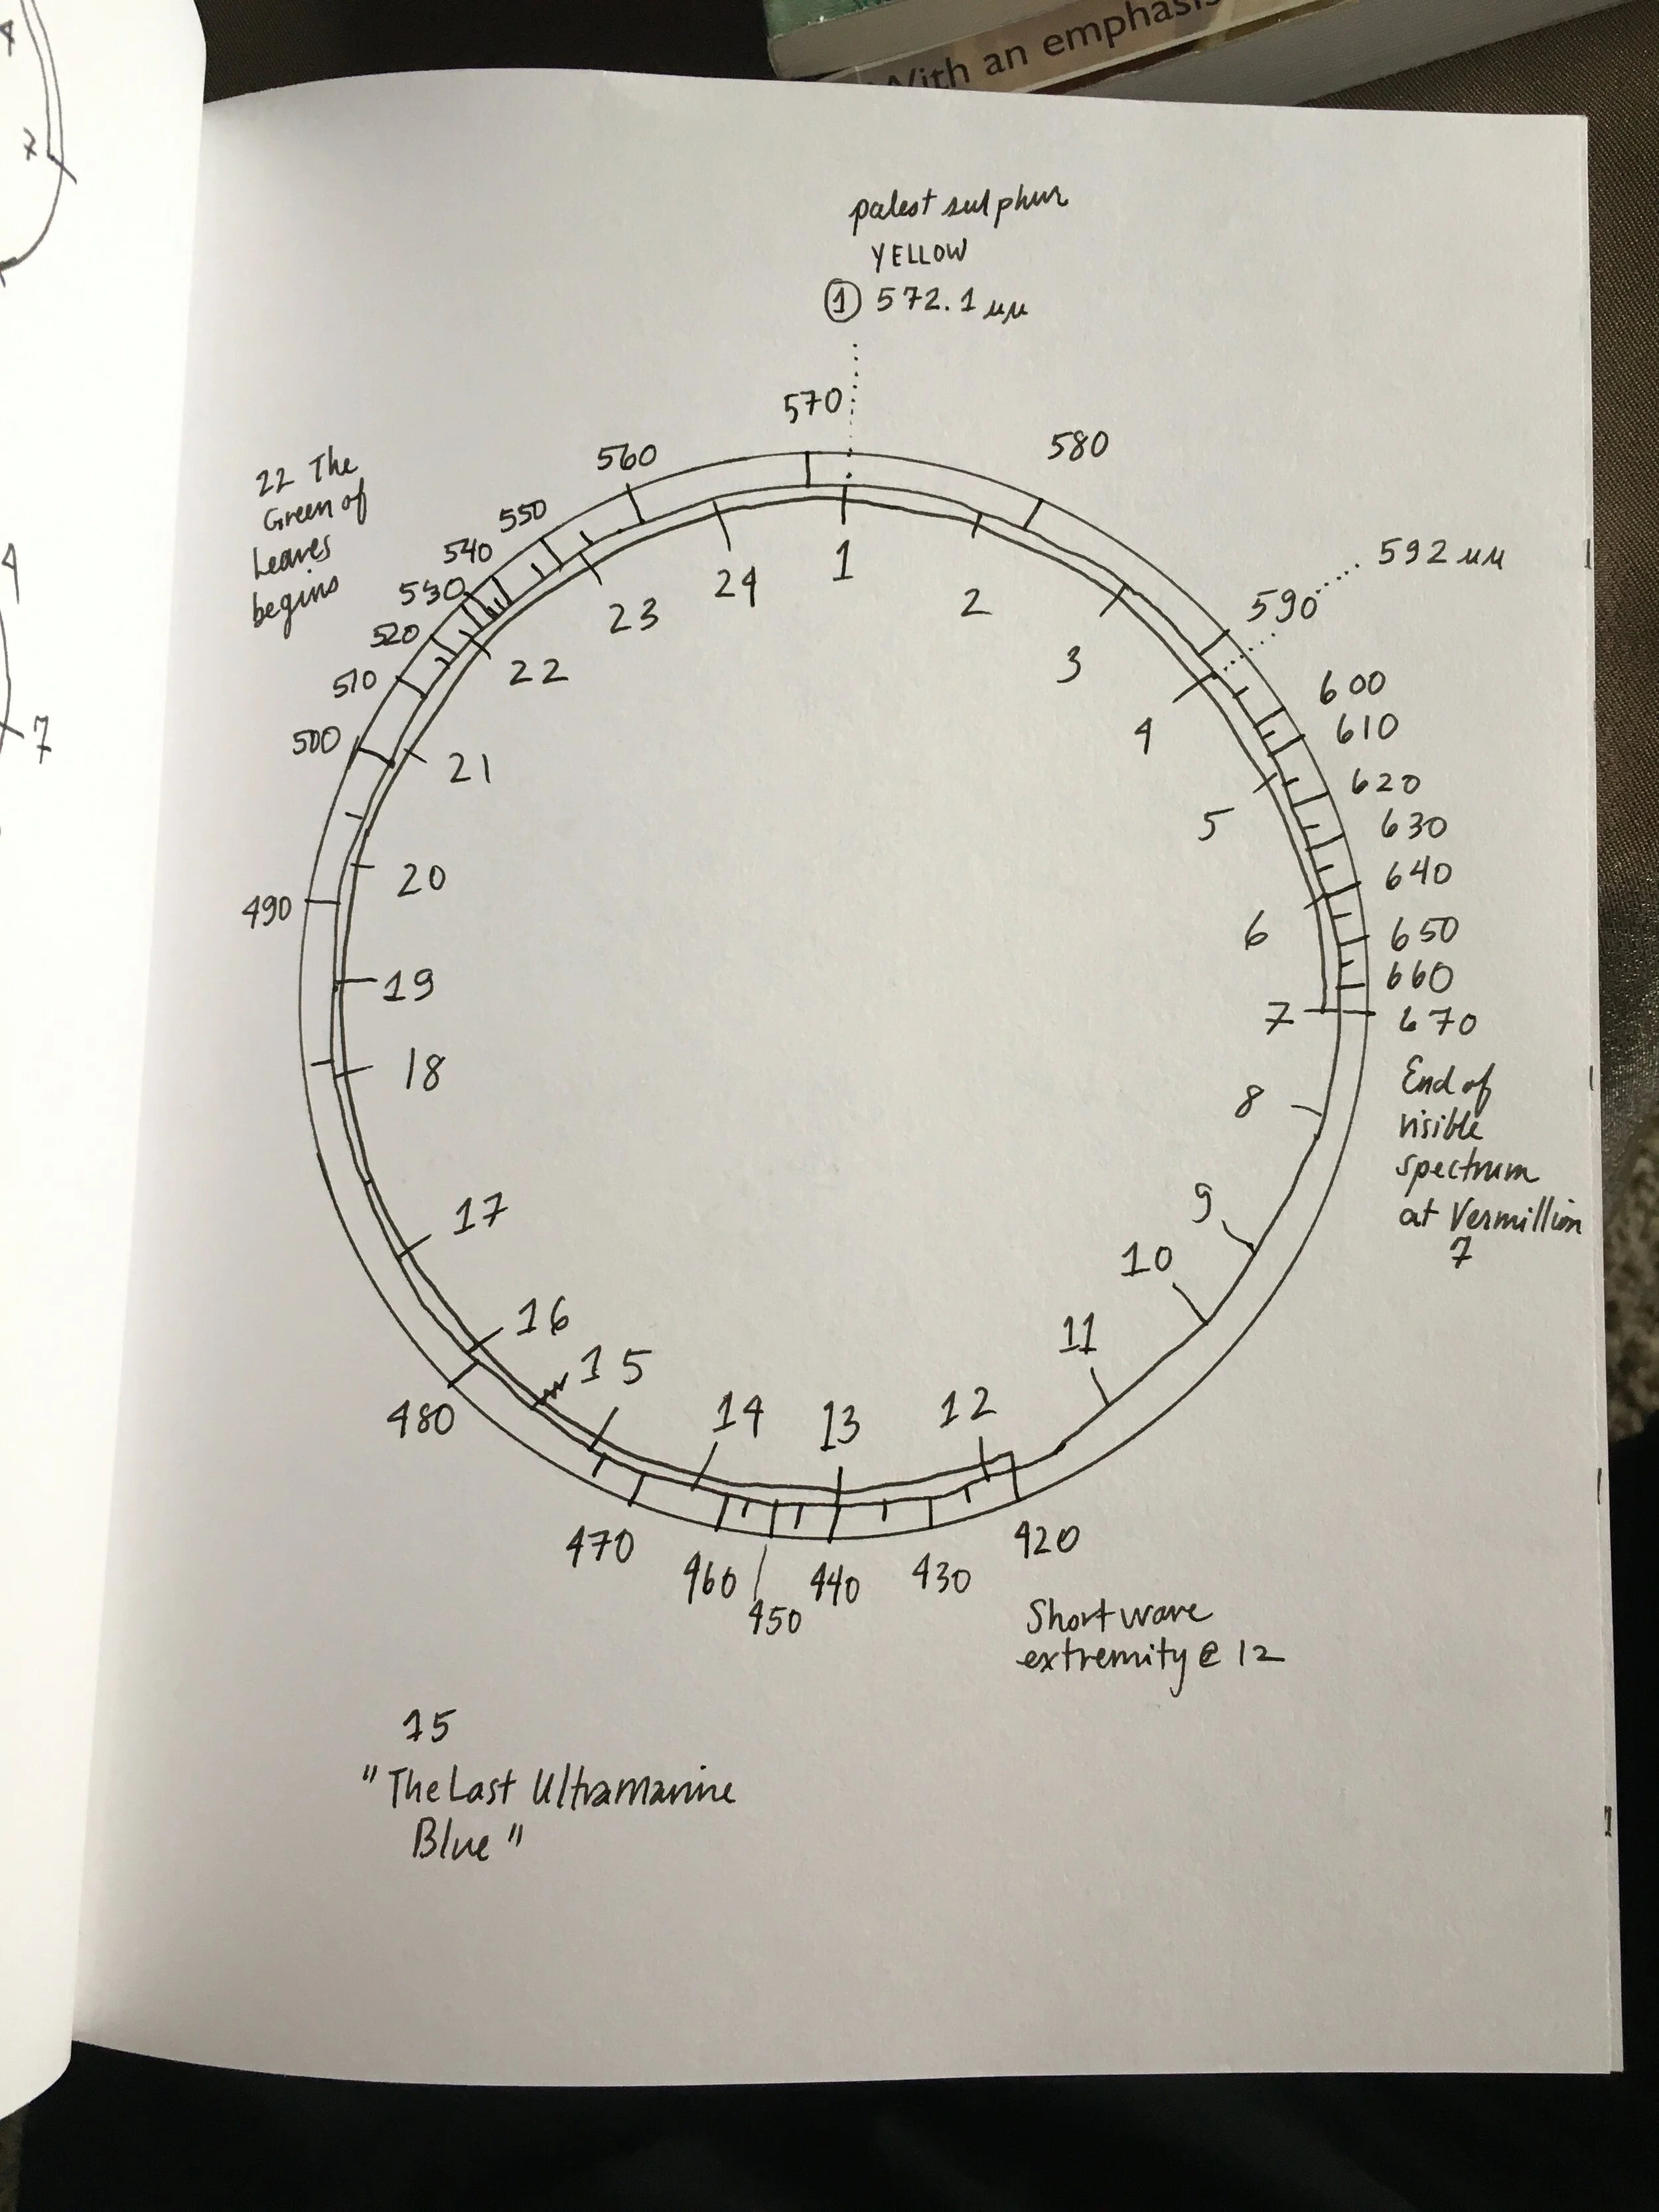 With an emphasis
4
7
4
7
palest sulphur
YELLOW
① 572.1 µµ
570
560
580
22 The
Green of
Leaves
begins
550
540
530
520
510
500
490
480
470
460
450
440
430
420
592 µµ
590
600
610
620
630
640
650
660
670
End of
visible
spectrum
at Vermillion
7
1
2
3
4
5
6
7
8
9
10
11
12
13
14
15
16
17
18
19
20
21
22
23
24
Short wave
extremity @ 12
15
"The Last Ultramarine
Blue"